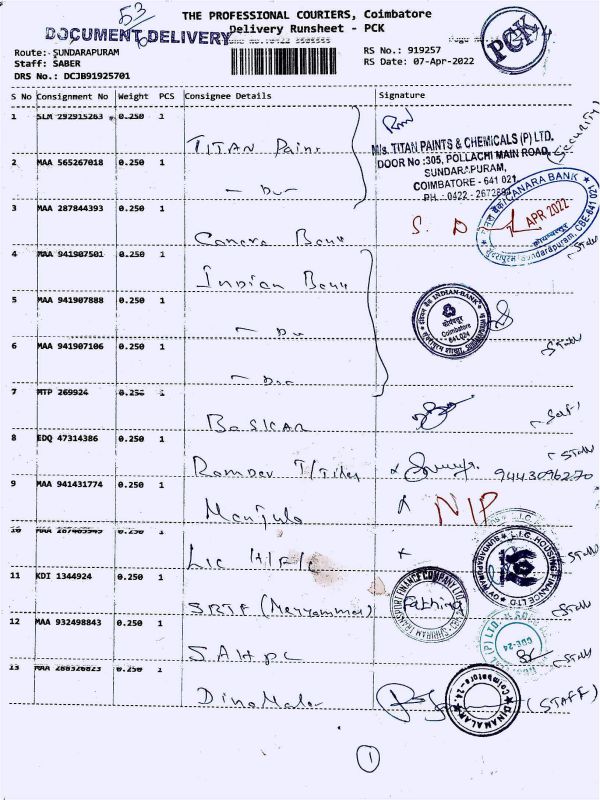 53
THE PROFESSIONAL COURIERS, Coimbatore
DOCUMENT DELIVERY
Delivery Runsheet - PCK
PCK
Route: SUNDARAPURAM
Staff: SABER
DRS No.: DCJB91925701
RS No.: 919257
RS Date: 07-Apr-2022
S No Consignment No Weight PCS Consignee Details Signature
1 SLM 292915263 0.250 1
TITAN Paint
M/s. TITAN PAINTS & CHEMICALS (P) LTD.
DOOR No :305, POLLACHI MAIN ROAD,
SUNDARAPURAM,
COIMBATORE - 641 021.
(Security)
2 MAA 565267018 0.250 1
- Do -
3 MAA 287844393 0.250 1
Canara Bank
CANARA BANK
APR 2022
Sundarapuram, CBE-641 021
4 MAA 941907501 0.250 1
Indian Bank
INDIAN-BANK
Coimbatore
641 024
5 MAA 941907888 0.250 1
- Do
6 MAA 941907106 0.250 1
- Do -
7 MTP 269924 0.250 1
BASKAR
Self
8 EDQ 47314386 0.250 1
Ramdev T/Tiles
Staff
9443096270
9 MAA 941431774 0.250 1
Manjula
NIP
10 MAA 0.250 1
LIC H/F/L
L.I.C. HOUSING FINANCE LTD
Staff
11 KDI 1344924 0.250 1
SRTF (Meyyammai)
SHRIRAM TRANSPORT FINANCE COMPANY LTD.
Staff
12 MAA 932498843 0.250 1
SAHPL
CBE-24
Staff
13 MAA 288326823 0.250 1
DinaMalar
DINAMALAR
Coimbatore-24.
(STAFF)
1